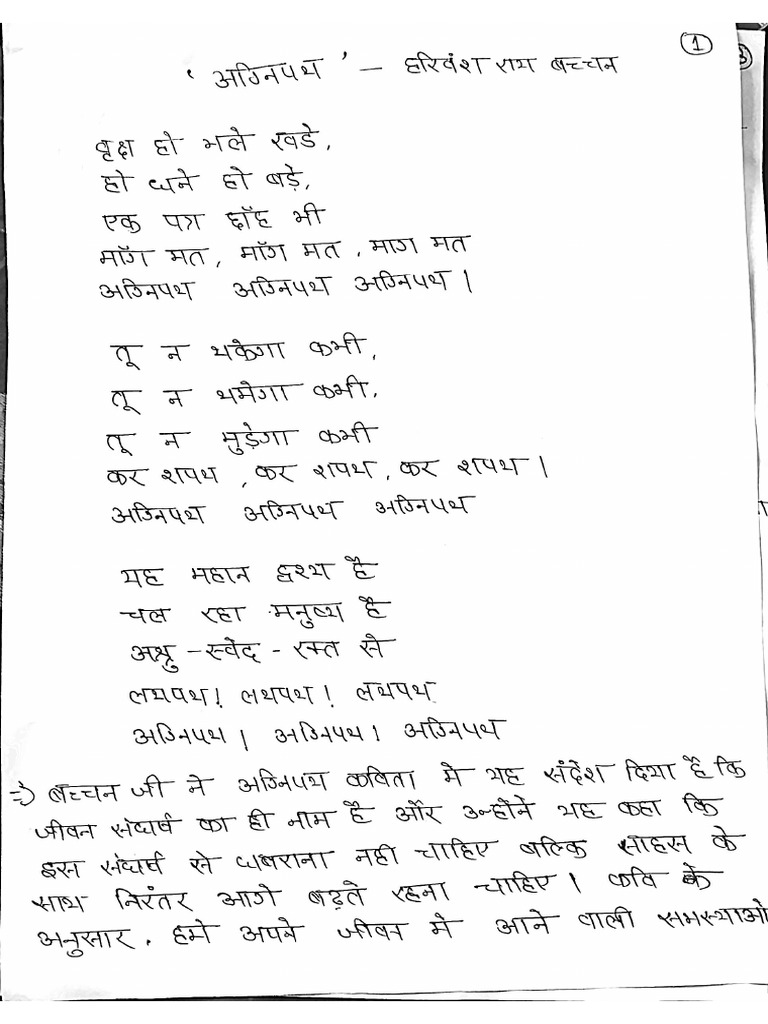 1
3
' अग्निपथ ' – हरिवंश राय बच्चन
वृक्ष हो भले खडे,
हो घने हो बड़े,
एक पत्र छाँह भी
माँग मत, माँग मत, माग मत
अग्निपथ अग्निपथ अग्निपथ।
तू न थकेगा कभी,
तू न थमेगा कभी,
तू न मुड़ेगा कभी
कर शपथ, कर शपथ, कर शपथ।
अग्निपथ अग्निपथ अग्निपथ
यह महान दृश्य है
चल रहा मनुष्य है
अश्रु - स्वेद - रक्त से
लथपथ! लथपथ! लथपथ
अग्निपथ। अग्निपथ। अग्निपथ
=> बच्चन जी ने अग्निपथ कविता मे यह संदेश दिया है कि
जीवन संघर्ष का ही नाम है और उन्होंने यह कहा कि
इस संघर्ष से घबराना नही चाहिए बल्कि साहस के
साथ निरंतर आगे बढ़ते रहना चाहिए। कवि के
अनुसार, हमे अपने जीवन मे आने वाली समस्याओ